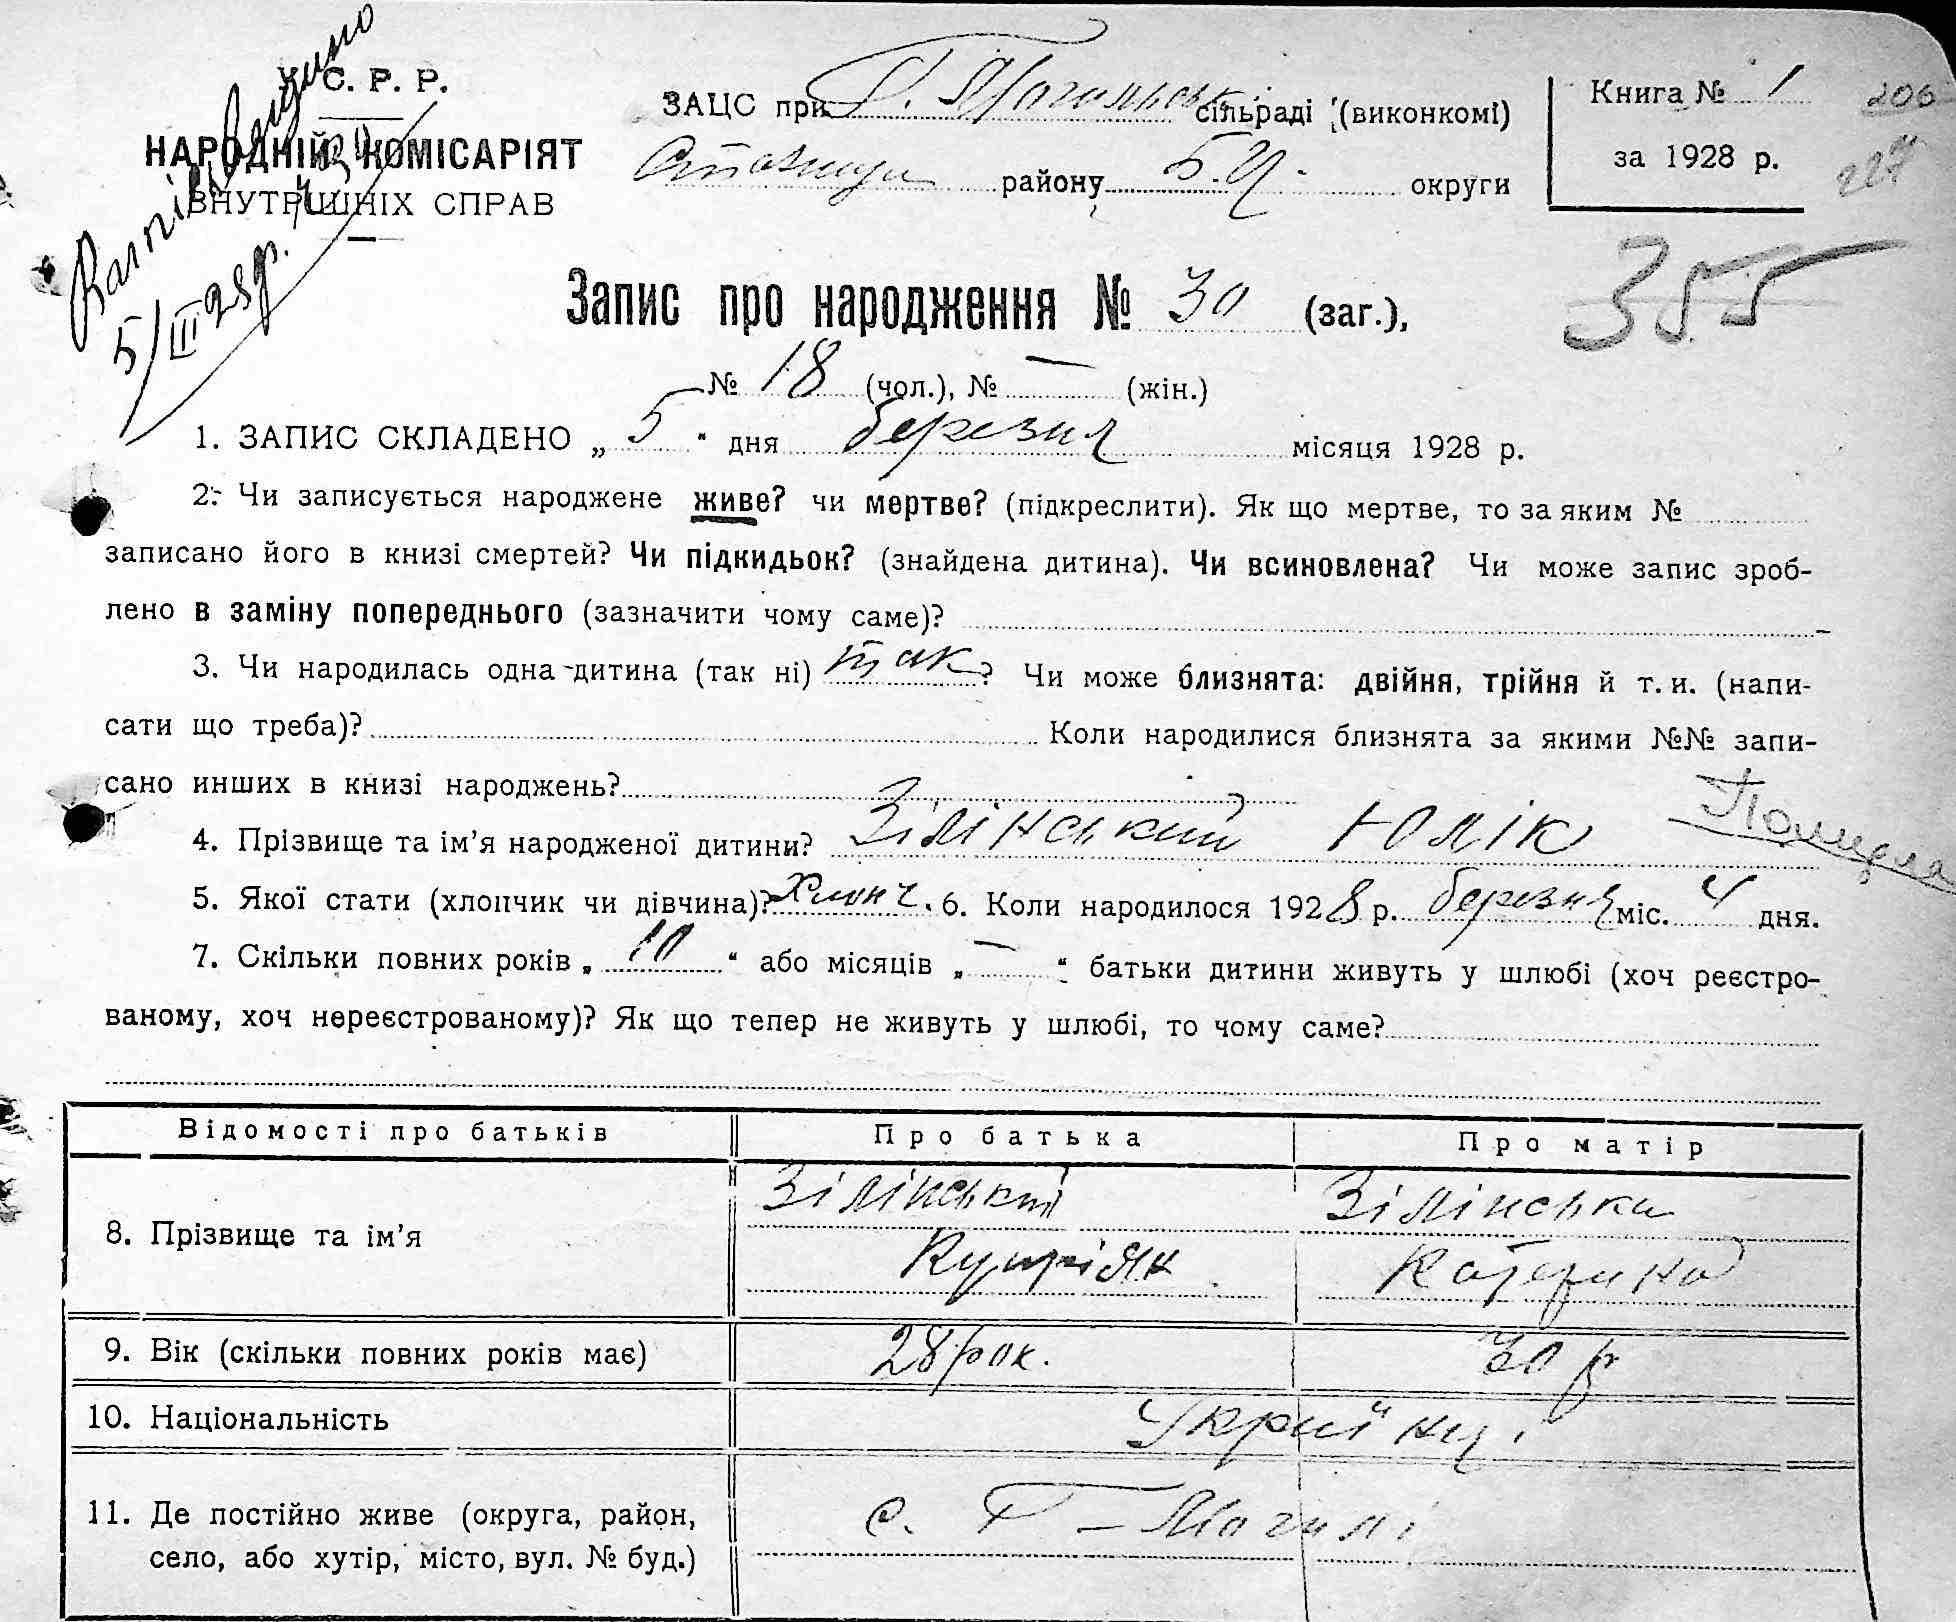 С. Р. Р.
НАРОДНІЙ КОМІСАРІЯТ
ВНУТРІШНІХ СПРАВ
5/III 28р.
ЗАЦС при Г. Могильськ. сільраді (виконкомі)
району Б.Ц. округи
Книга № 1
за 1928 р.
206
227
355
Запис про народження № 30 (заг.),
№ 18 (чол.), № — (жін.)
1. ЗАПИС СКЛАДЕНО „ 5 " дня березня місяця 1928 р.
2. Чи записується народжене живе? чи мертве? (підкреслити). Як що мертве, то за яким №
записано його в книзі смертей? Чи підкидьок? (знайдена дитина). Чи всиновлена? Чи може запис зроб-
лено в заміну попереднього (зазначити чому саме)?
3. Чи народилась одна дитина (так ні) так ? Чи може близнята: двійня, трійня й т. и. (напи-
сати що треба)? Коли народилися близнята за якими №№ запи-
сано инших в книзі народжень?
4. Прізвище та ім'я народженої дитини? Зілінський Юлік
5. Якої стати (хлопчик чи дівчина)? Хлопч. 6. Коли народилося 1928 р. березня міс. 4 дня.
7. Скільки повних років „ 10 " або місяців „ — " батьки дитини живуть у шлюбі (хоч реєстро-
ваному, хоч нереєстрованому)? Як що тепер не живуть у шлюбі, то чому саме?
Відомості про батьків Про батька Про матір
8. Прізвище та ім'я Зілінський Зілінська
Купріян Катерина
9. Вік (скільки повних років має) 28 рок. 30 р
10. Національність Українці
11. Де постійно живе (округа, район,
село, або хутір, місто, вул. № буд.) с. Г – Могилі